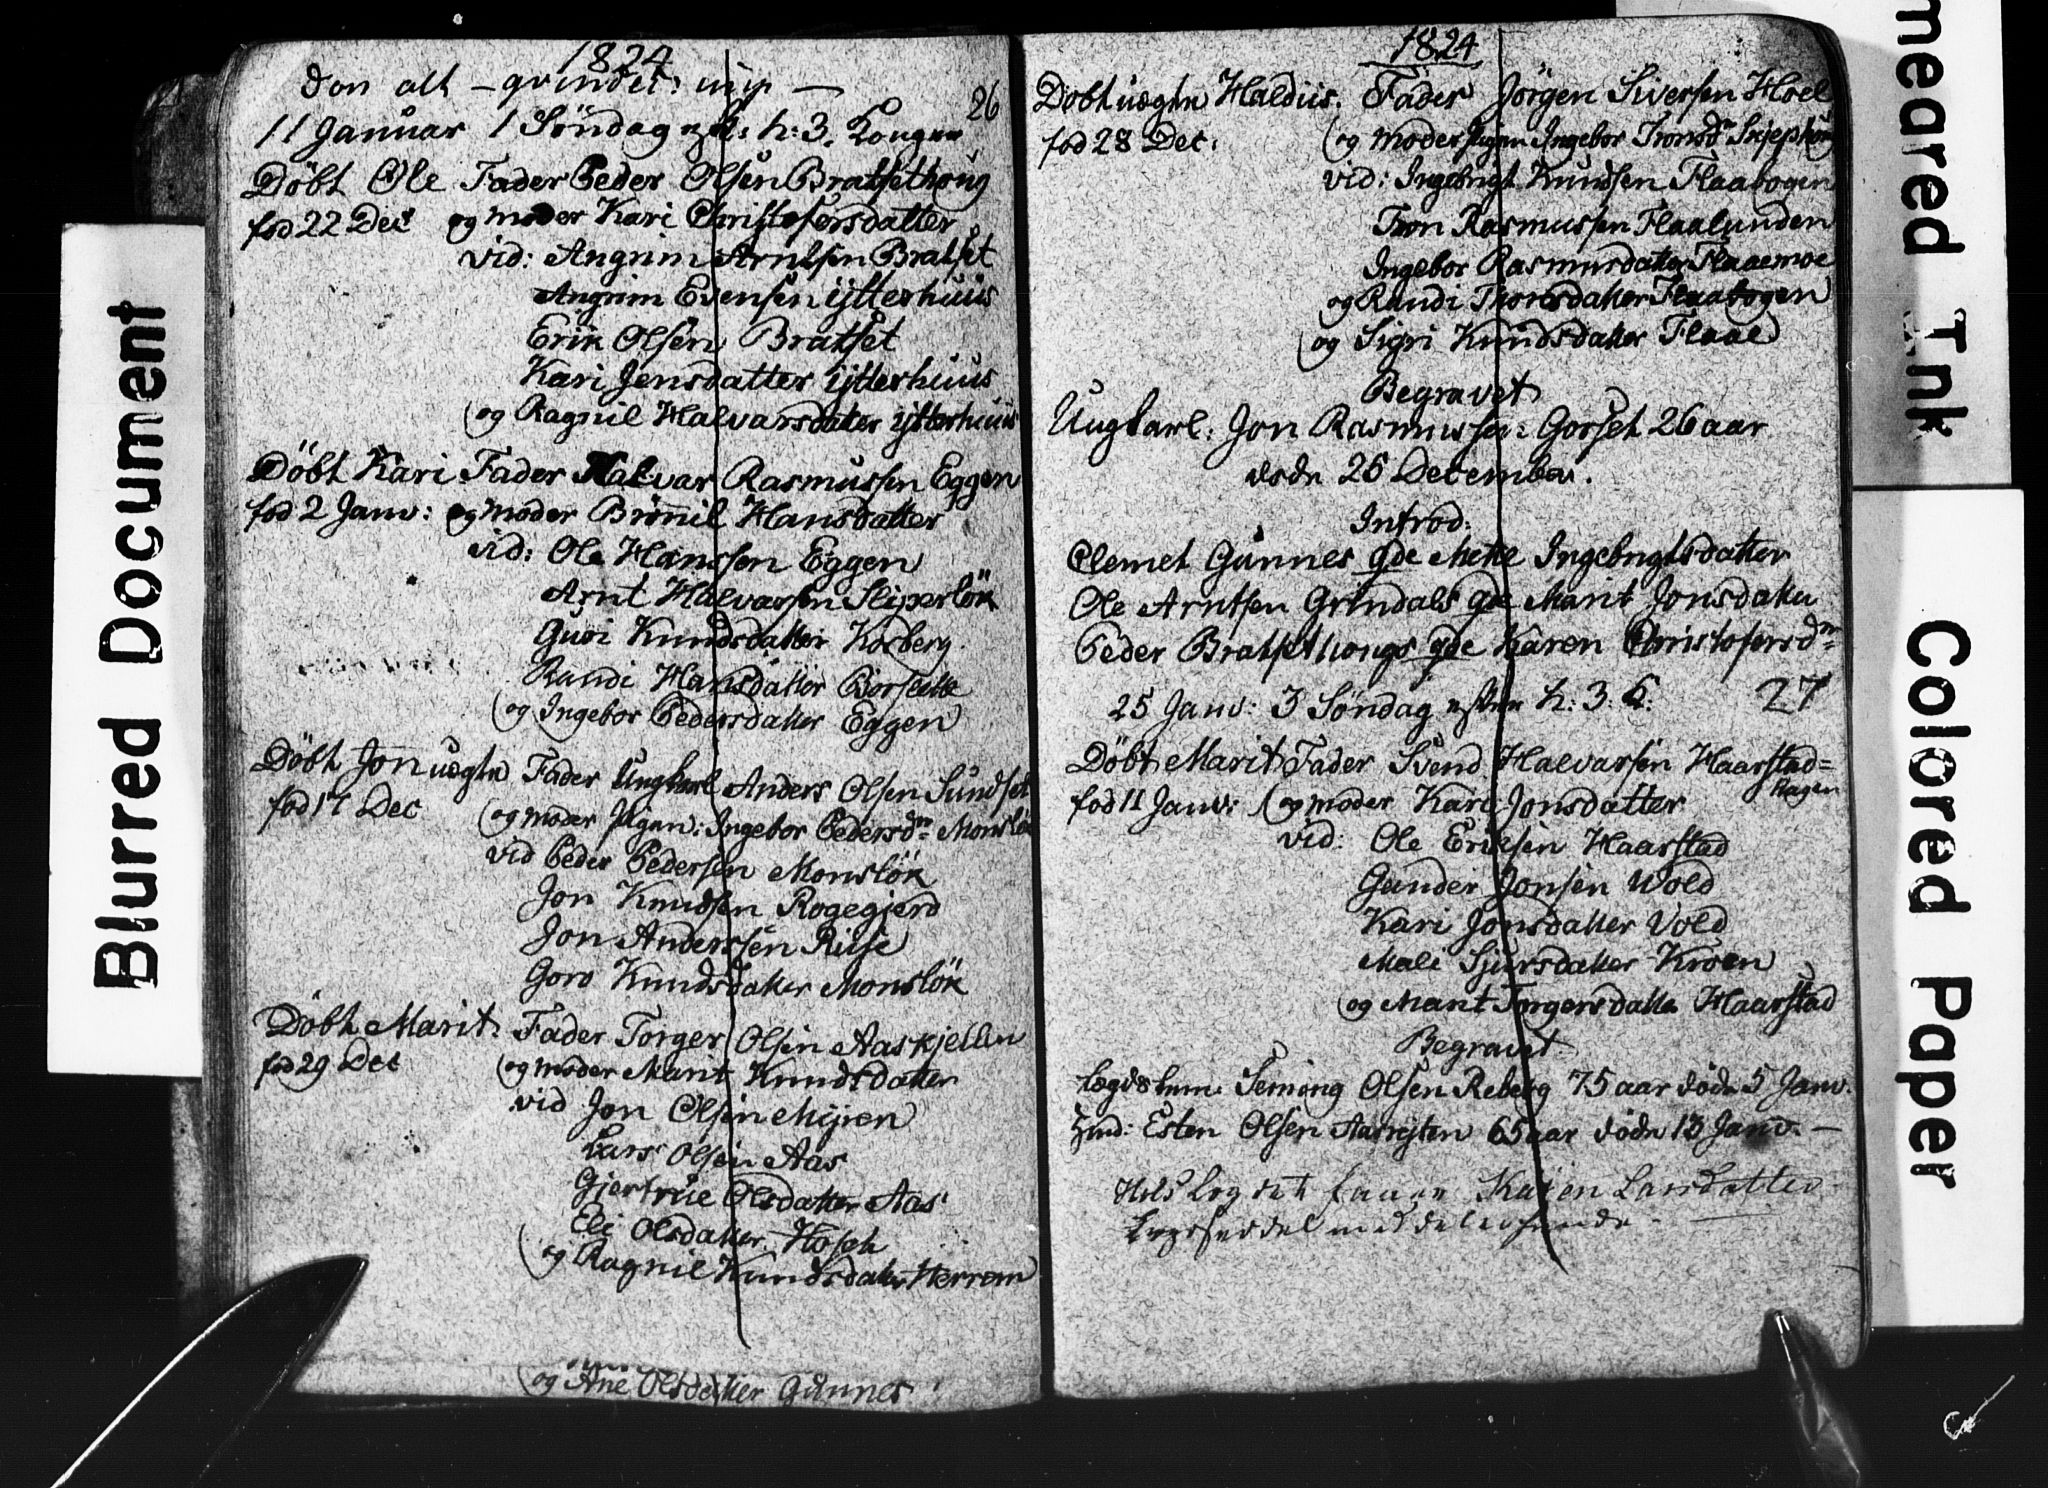 1824
26
11 Januar 1 Søndag h: 3. Konger
Døbt Ole Fader Peder Olsen Bratsethoug
fød 22 Dec og moder Kari Christofersdatter
vid: Angrim Arntsen Bratset
Angrim Evensen Ytterhuus
Erik Olsen Bratset
Kari Jensdatter Ytterhuus
og Ragnil Halvarsdatter Ytterhuus
Døbt Kari Fader Halvar Rasmussen Eggen
fød 2 Janv: og moder Brønnil Hansdatter
vid: Ole Hanssen Eggen
Arnt Halvarsen Slipperløk
Guri Knudsdatter Korberg
Randi Hansdatter Borsette
og Ingebor Pedersdatter Eggen
Døbt Jon uægte Fader Ungkarl Anders Olsen Sundset
fød 17 Dec og moder pigen: Ingebor Pedersdr Monsløk
vid Peder Pedersen Monsløk
Jon Knudsen Rogegjerd
Jon Anderssen Riise
Goro Knudsdatter Monsløk
Døbt Marit Fader Torger Olsen Aaskjellen
fød 29 Dec og moder Marit Knudtdatter
vid Jon Olsen Mjøen
Lars Olsen Aas
Gjertrue Olsdatter Aas
Eli Olsdatter Hoseth
og Ragnil Knudsdatter Herrem
og Ane Olsdatter Gunnes
1824
Døbt uægte Haldiis. Fader Jörgen Siversen Hoel
fød 28 Dec: og moder pigen Ingebor Tronsdr Skjephoug
vid: Ingebrigt Knudsen Flaabogen
Tron Rasmussen Flaalunden
Ingebor Rasmusdatter Flaaemoe
og Randi Tronsdatter Flaabogen
og Sigri Knudsdatter Flaae
Begravet
Ungkarl: Jon Rasmussen Gorset 26 aar
døde 26 December.
Introd:
Clemet Gunnes gde Mette Ingebrigtsdatter
Ole Arntsen Grindals gde Marit Jonsdatter
Peder Bratsethougs gde Karen Christofersdr
25 Janv: 3 Søndag efter h: 3: K: 27
Døbt Marit Fader Svend Halvarsen Haarstad=
hagen
fød 11 Janv: og moder Kari Jonsdatter
vid: Ole Eriksen Haarstad
Gunder Jonsen Wold
Kari Jonsdatter Vold
Mali Sjursdatter Kroen
og Marit Torgersdatter Haarstad
Begravet
Lægdslem: Seming Olsen Reberg 75 aar døde 5 Janv:
Esten Olsen 65 aar døde 13 Janv. —
Karen Larsdatter
Blurred Document
meared Ink
Colored Paper